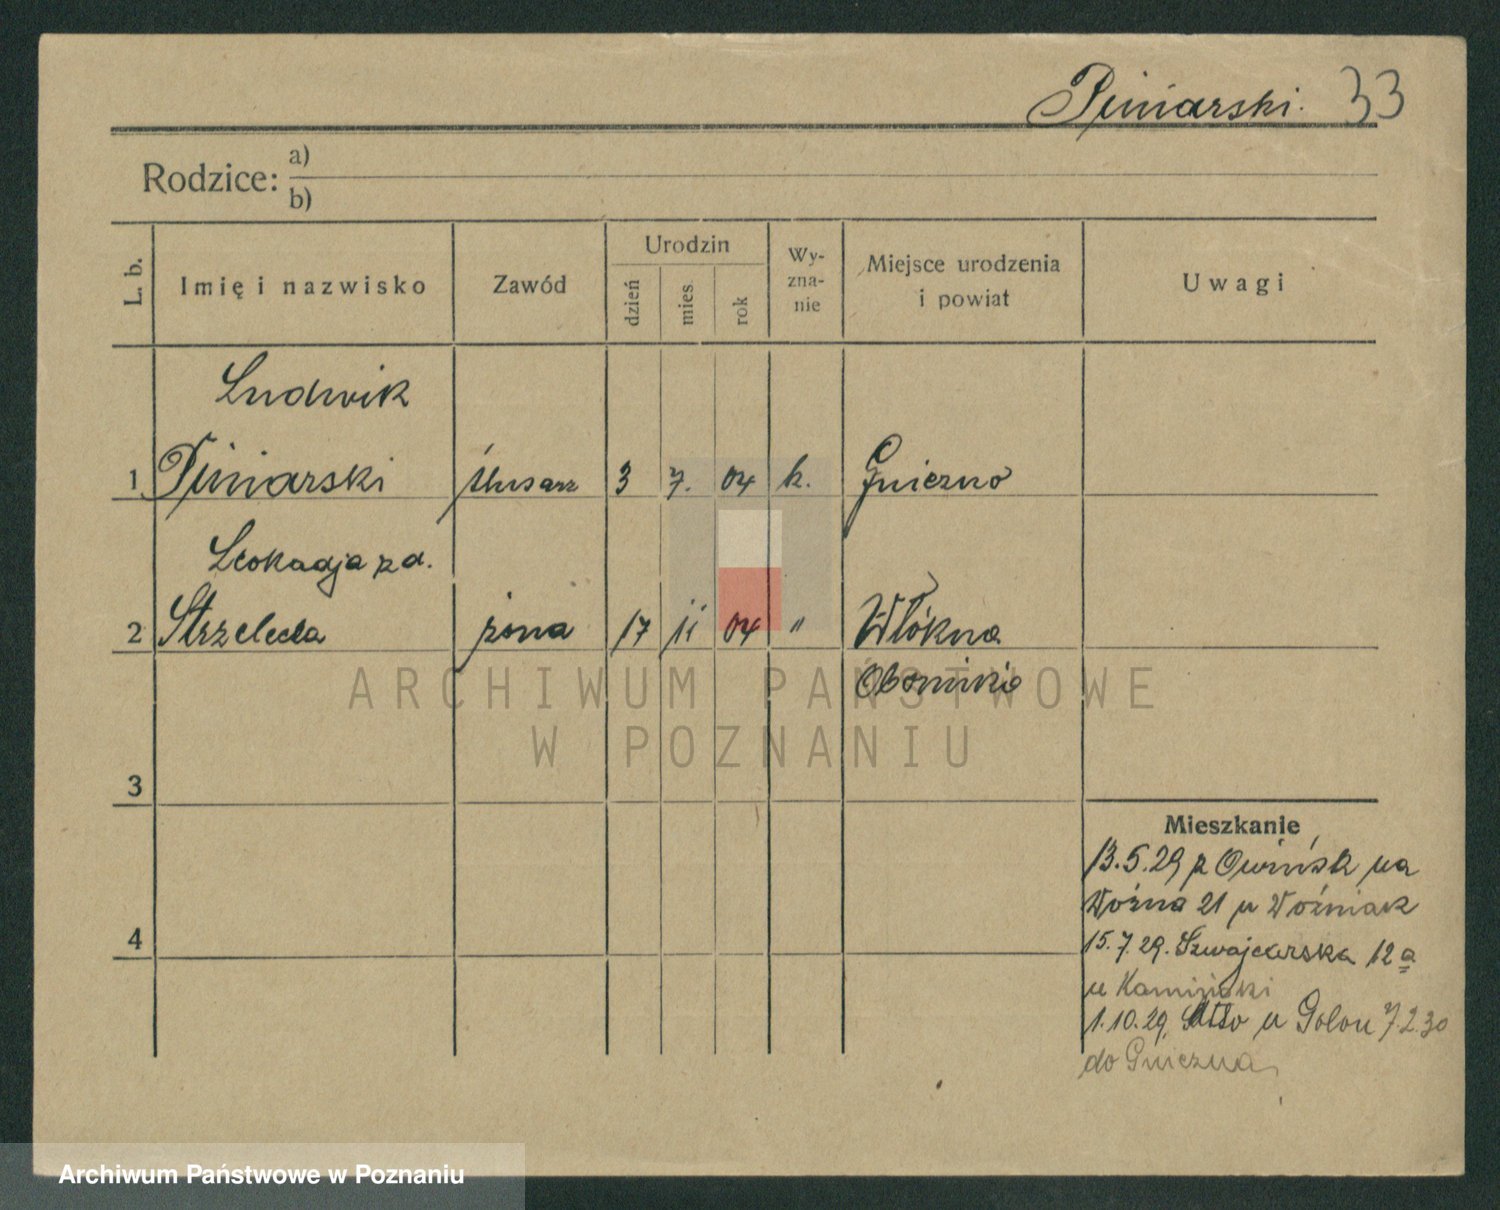 Piniarski. 33
Rodzice: a)
b)
L. b. Imię i nazwisko Zawód Urodzin dzień mies rok Wy-zna-nie Miejsce urodzenia i powiat Uwagi
Ludwik
1 Piniarski ślusarz 3 7. 04 k. Gniezno
Leokadja zd.
2 Strzelecka żona 17 11 04 " Włókna
Obornikie
ARCHIWUM PAŃSTWOWE
W POZNANIU
3
Mieszkanie
13.5.29 z Owińsk na
Woźna 21 u Woźniak
4
15.7.29. Szwajcarska 12a
u Kamiński
1.10.29. u Golon 7.2.30
do Gniezna
Archiwum Państwowe w Poznaniu